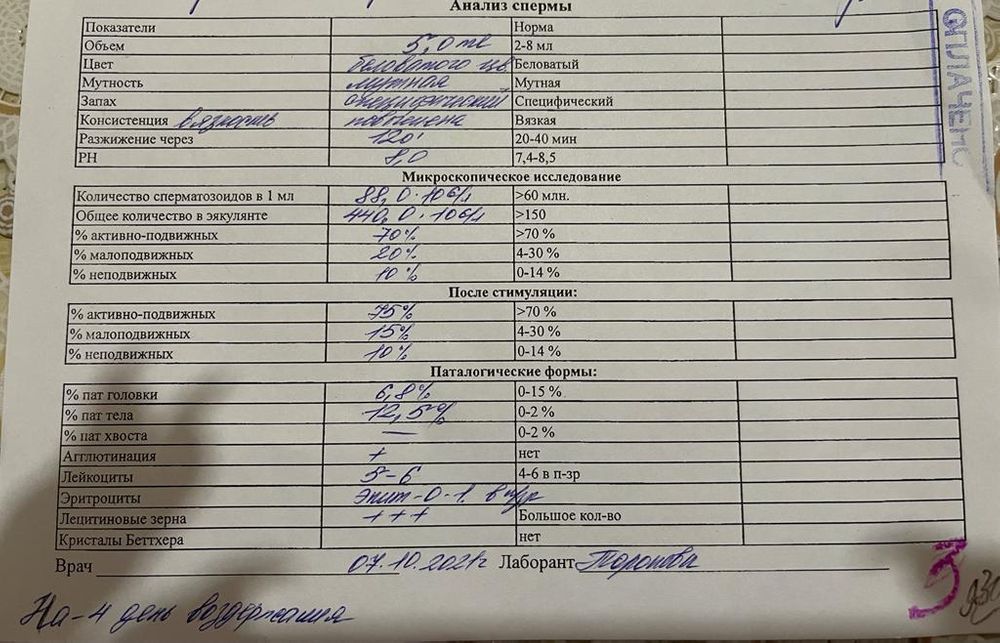 Анализ спермы
Показатели Норма
Объем 5,0 мл 2-8 мл
Цвет беловатого цв Беловатый
Мутность мутная Мутная
Запах специфический Специфический
Консистенция вязкость повышена Вязкая
Разжижение через 120' 20-40 мин
РН 8,0 7,4-8,5
Микроскопическое исследование
Количество сперматозоидов в 1 мл 88,0·10б/л >60 млн.
Общее количество в эякулянте 440,0·10б/л >150
% активно-подвижных 70% >70 %
% малоподвижных 20% 4-30 %
% неподвижных 10% 0-14 %
После стимуляции:
% активно-подвижных 75% >70 %
% малоподвижных 15% 4-30 %
% неподвижных 10% 0-14 %
Паталогические формы:
% пат головки 6,8% 0-15 %
% пат тела 12,5% 0-2 %
% пат хвоста — 0-2 %
Агглютинация + нет
Лейкоциты 5-6 4-6 в п-зр
Эритроциты Эпит-0-1 в п/зр
Лецитиновые зерна +++ Большое кол-во
Кристалы Беттхера нет
Врач 07.10.2021г Лаборант
На-4 день воздержания
ОПЛАЧЕНО